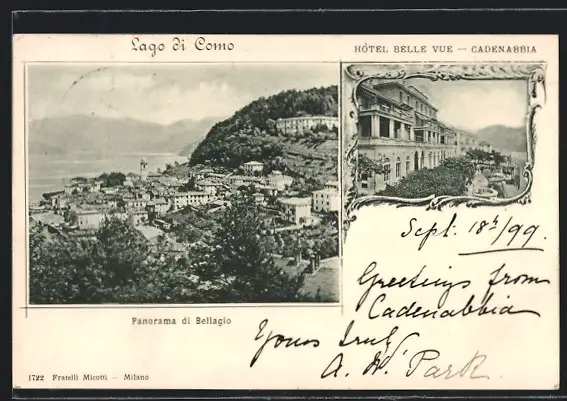 Lago di Como
HÔTEL BELLE VUE – CADENABBIA
Sept. 18th/99.
Greetings from
Cadenabbia
Yours truly
A. W. Park
Panorama di Bellagio
1722 Fratelli Micotti – Milano